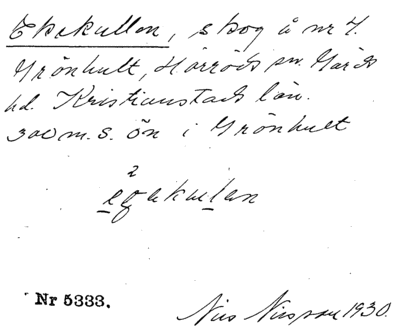 Ekekullen, skog å nr 4.
Grönhult, Hörröds sn. Gärds
hd. Kristianstads län.
300 m. s. ön i Grönhult
2
egekulan
Nr 5333.
Nils Nilsson 1930.